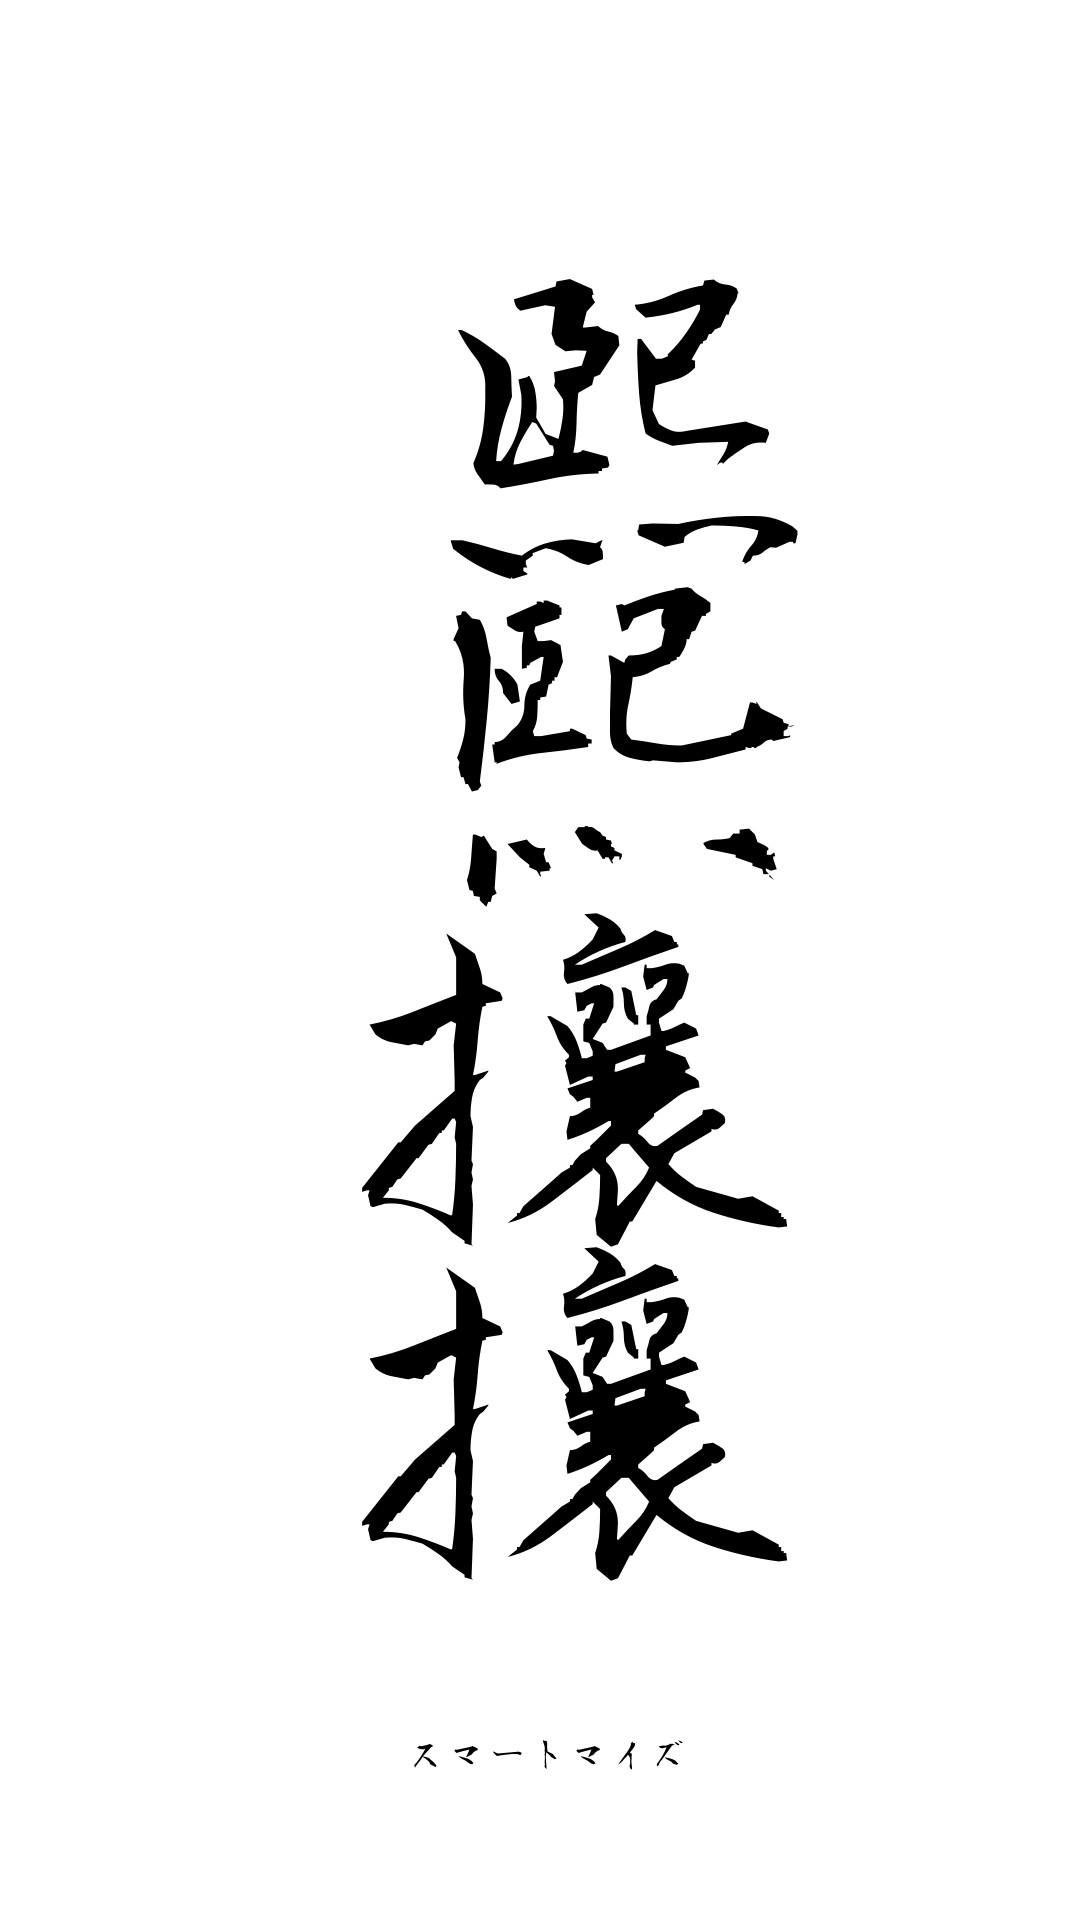 熙熙攘攘
スマートマイズ